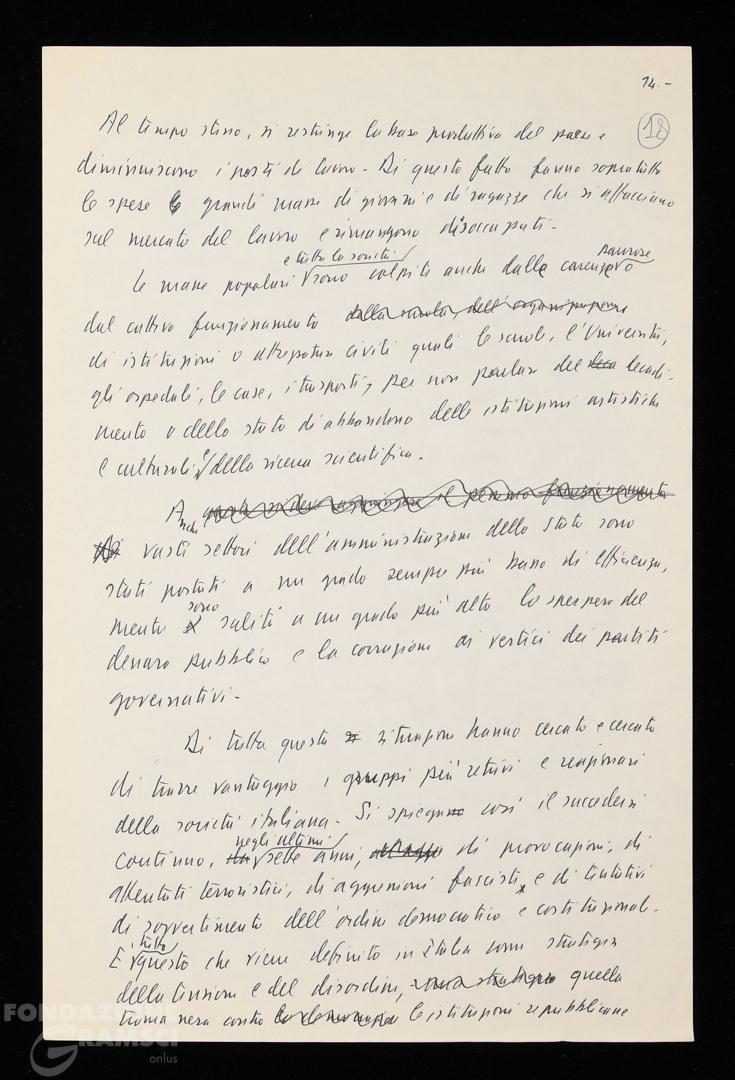 14.-
18
Al tempo stesso, si restringe la base produttiva del paese e
diminuiscono i posti di lavoro - Di questo fatto fanno sopratutto
le spese le grandi masse di giovani e di ragazze che si affacciano
sul mercato del lavoro e rimangono disoccupati -
e tutta la società paurose
Le masse popolari sono colpite anche dalle carenze o
dal cattivo funzionamento dalla scuola, dell'
di istituzioni o attrezzature civili quali le scuole, l'Università,
gli ospedali, le case, i trasporti, per non parlare del decadi-
mento o dello stato di abbandono delle istituzioni artistiche
e culturali e della ricerca scientifica.
Anche
vasti settori dell'amministrazione dello Stato sono
stati portati a un grado sempre più basso di efficienza,
sono
mentre saliti a un grado più alto lo sperpero del
denaro pubblico e la corruzione ai vertici dei partiti
governativi -
Di tutta questa situazione hanno cercato e cercato
di trarre vantaggio i gruppi più retrivi e reazionari
della società italiana - Si spiega così il succedersi
negli ultimi
continuo, sette anni, di provocazioni, di
attentati terroristici, di aggressioni fasciste e di tentativi
di sovvertimento dell'ordine democratico e costituzionale -
tutto
È questo che viene definito in Italia come strategia
della tensione e del disordine, quella
trama nera contro le istituzioni repubblicane
FONDAZIONE
GRAMSCI
onlus